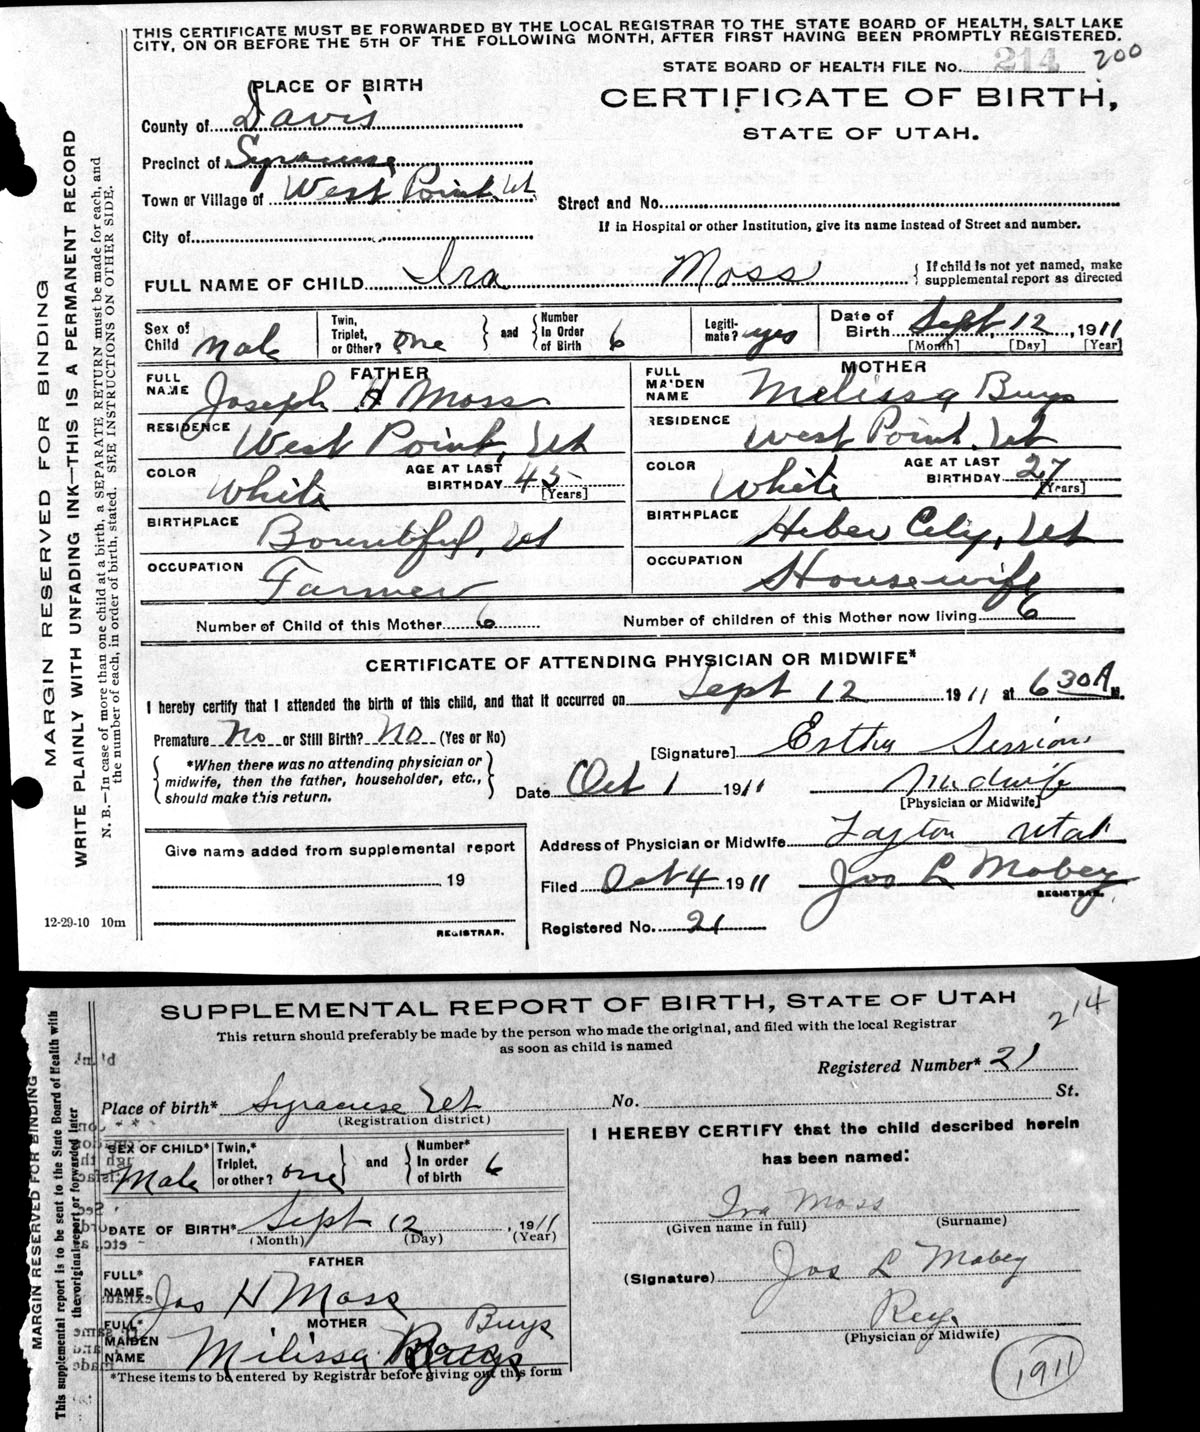 THIS CERTIFICATE MUST BE FORWARDED BY THE LOCAL REGISTRAR TO THE STATE BOARD OF HEALTH, SALT LAKE
CITY, ON OR BEFORE THE 5TH OF THE FOLLOWING MONTH, AFTER FIRST HAVING BEEN PROMPTLY REGISTERED.
STATE BOARD OF HEALTH FILE No. 214 200
PLACE OF BIRTH
CERTIFICATE OF BIRTH,
STATE OF UTAH.
County of Davis
Precinct of Syracuse
Town or Village of West Point Ut
Street and No.
If in Hospital or other Institution, give its name Instead of Street and number.
City of
FULL NAME OF CHILD Ira Moss { If child is not yet named, make
supplemental report as directed
Sex of
Child Male
Twin,
Triplet,
or Other? One
and
Number
In Order
of Birth 6
Legiti-
mate? yes
Date of
Birth Sept 12, 1911
[Month] [Day] [Year]
FATHER
FULL
NAME Joseph H Moss
RESIDENCE West Point, Ut
COLOR White
AGE AT LAST
BIRTHDAY 45
[Years]
BIRTHPLACE Bountiful, Ut
OCCUPATION Farmer
MOTHER
FULL
MAIDEN
NAME Melissa Buys
RESIDENCE West Point, Ut
COLOR White
AGE AT LAST
BIRTHDAY 27
[Years]
BIRTHPLACE Heber City, Ut
OCCUPATION Housewife
Number of Child of this Mother 6
Number of children of this Mother now living 6
CERTIFICATE OF ATTENDING PHYSICIAN OR MIDWIFE*
I hereby certify that I attended the birth of this child, and that it occurred on Sept 12 1911 at 6 30 A M.
Premature No or Still Birth? No (Yes or No)
*When there was no attending physician or
midwife, then the father, householder, etc.,
should make this return.
[Signature] Esther Sessions
Date Oct 1 1911
Midwife
[Physician or Midwife]
Give name added from supplemental report
19
REGISTRAR.
Address of Physician or Midwife Layton Utah
Filed Oct 4 1911
Jos L Mabey
REGISTRAR.
Registered No. 21
12-29-10 10m
MARGIN RESERVED FOR BINDING
WRITE PLAINLY WITH UNFADING INK—THIS IS A PERMANENT RECORD
N. B.—In case of more than one child at a birth, a SEPARATE RETURN must be made for each, and
the number of each, in order of birth, stated. SEE INSTRUCTIONS ON OTHER SIDE.
SUPPLEMENTAL REPORT OF BIRTH, STATE OF UTAH
214
This return should preferably be made by the person who made the original, and filed with the local Registrar
as soon as child is named
Registered Number* 21
Place of birth* Syracuse Ut
(Registration district)
No. St.
SEX OF CHILD*
Male
Twin,*
Triplet,
or other? one
and
Number*
In order
of birth 6
DATE OF BIRTH* Sept 12, 1911
(Month) (Day) (Year)
FATHER
FULL*
NAME Jos H Moss
MOTHER
FULL*
MAIDEN
NAME Milissa Buys
*These items to be entered by Registrar before giving out this form
I HEREBY CERTIFY that the child described herein
has been named:
Ira Moss
(Given name in full) (Surname)
(Signature) Jos L Mabey
Reg.
(Physician or Midwife)
1911
MARGIN RESERVED FOR BINDING
This supplemental report is to be sent to the State Board of Health with
the original report or forwarded later